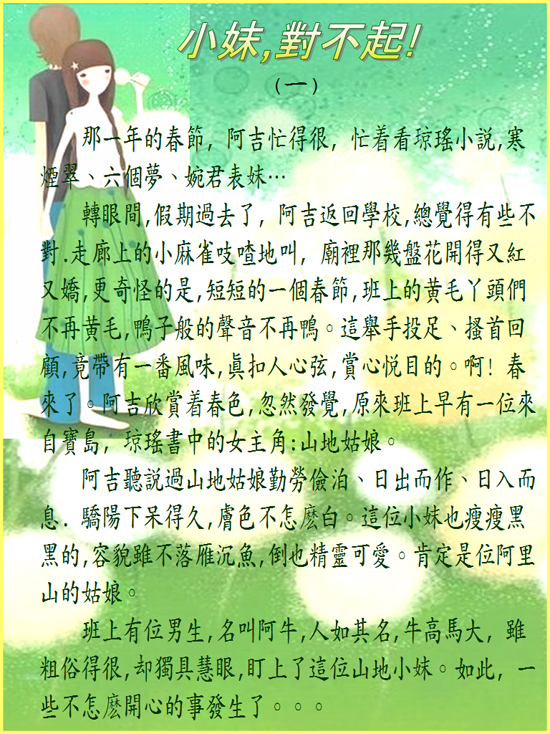 小妹,對不起!
(一)
那一年的春節，阿吉忙得很，忙着看琼瑤小説,寒
煙翠、六個夢、婉君表妹…
轉眼間,假期過去了，阿吉返回學校,總覺得有些不
對.走廊上的小麻雀吱喳地叫，廟裡那幾盤花開得又紅
又嬌,更奇怪的是,短短的一個春節,班上的黄毛丫頭們
不再黄毛,鴨子般的聲音不再鴨。這舉手投足、搔首回
顧,竟帶有一番風味,眞扣人心弦,賞心悦目的。啊！春
來了。阿吉欣賞着春色,忽然發覺,原來班上早有一位來
自寶島，琼瑤書中的女主角:山地姑娘。
阿吉聽説過山地姑娘勤勞儉泊、日出而作、日入而
息. 驕陽下呆得久,膚色不怎麽白。這位小妹也瘦瘦黑
黑的,容貌雖不落雁沉魚,倒也精靈可愛。肯定是位阿里
山的姑娘。
班上有位男生,名叫阿牛,人如其名,牛高馬大，雖
粗俗得很,却獨具慧眼,盯上了這位山地小妹。如此，一
些不怎麽開心的事發生了。。。